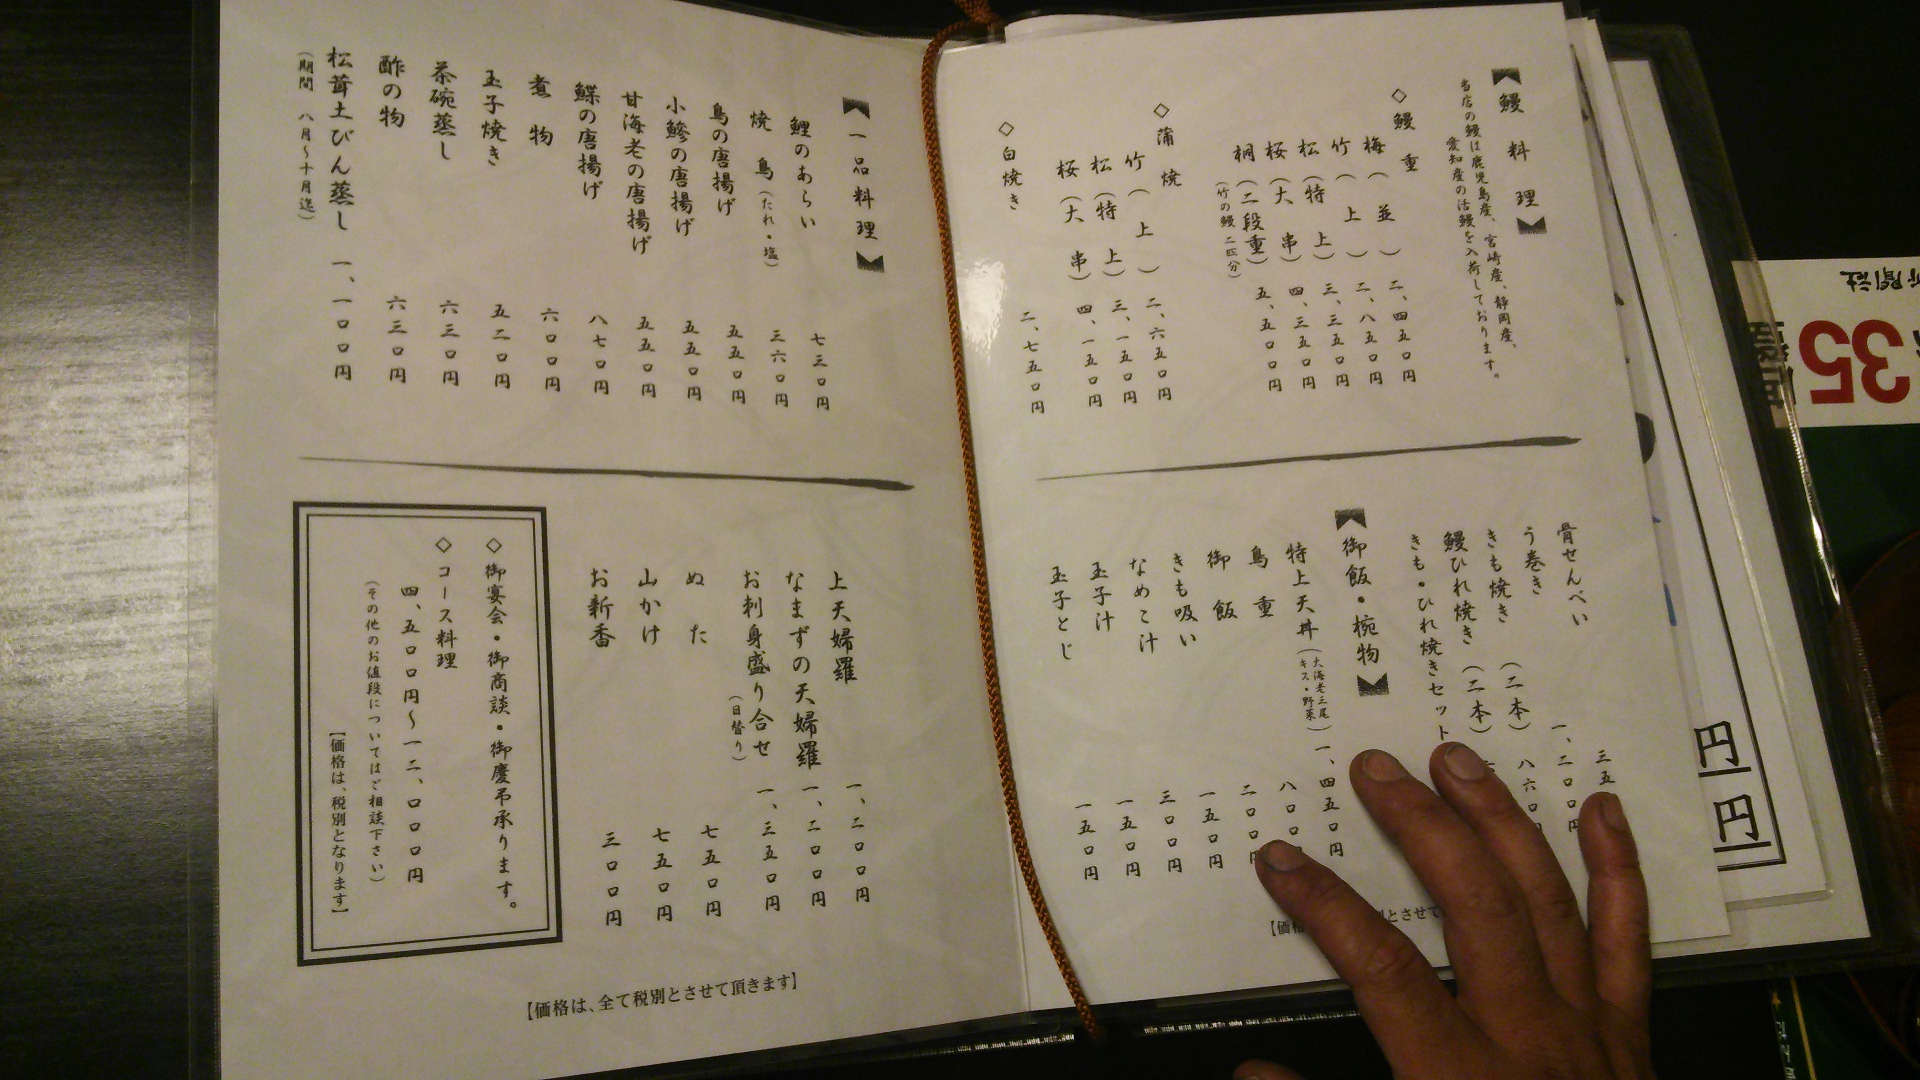 鰻料理
当店の鰻は鹿児島産、宮崎産、静岡産、
愛知産の活鰻を入荷しております。
◇鰻重
梅（並） 二、四五〇円
竹（上） 二、八五〇円
松（特上） 三、三五〇円
桜（大串） 四、三五〇円
桐（二段重） 五、五〇〇円
（竹の鰻 二匹分）
◇蒲焼
竹（上） 二、六五〇円
松（特上） 三、一五〇円
桜（大串） 四、一五〇円
◇白焼き 二、七五〇円
骨せんべい 三五
う巻き 一、二〇〇円
きも焼き（二本） 八六〇円
鰻ひれ焼き（二本）
きも・ひれ焼きセット
御飯・椀物
特上天丼（大海老二尾 キス・野菜） 一、四五〇円
鳥重 八〇〇円
御飯 二〇〇円
きも吸い 一五〇円
なめこ汁 三〇〇円
玉子汁 一五〇円
玉子とじ 一五〇円
【価格 とさせて
一品料理
鯉のあらい 七三〇円
焼鳥（たれ・塩） 三六〇円
鳥の唐揚げ 五五〇円
小鯵の唐揚げ 五五〇円
甘海老の唐揚げ 五五〇円
鰈の唐揚げ 八七〇円
煮物 六〇〇円
玉子焼き 五二〇円
茶碗蒸し 六三〇円
酢の物 六三〇円
松茸土びん蒸し 一、一〇〇円
（期間 八月〜十月迄）
上天婦羅 一、二〇〇円
なまずの天婦羅 一、二〇〇円
お刺身盛り合せ 一、三五〇円
（日替り）
ぬた 七五〇円
山かけ 七五〇円
お新香 三〇〇円
◇御宴会・御商談・御慶弔承ります。
◇コース料理
四、五〇〇円〜一二、〇〇〇円
（その他のお値段についてはご相談下さい）
【価格は、税別となります】
【価格は、全て税別とさせて頂きます】
円
円
35